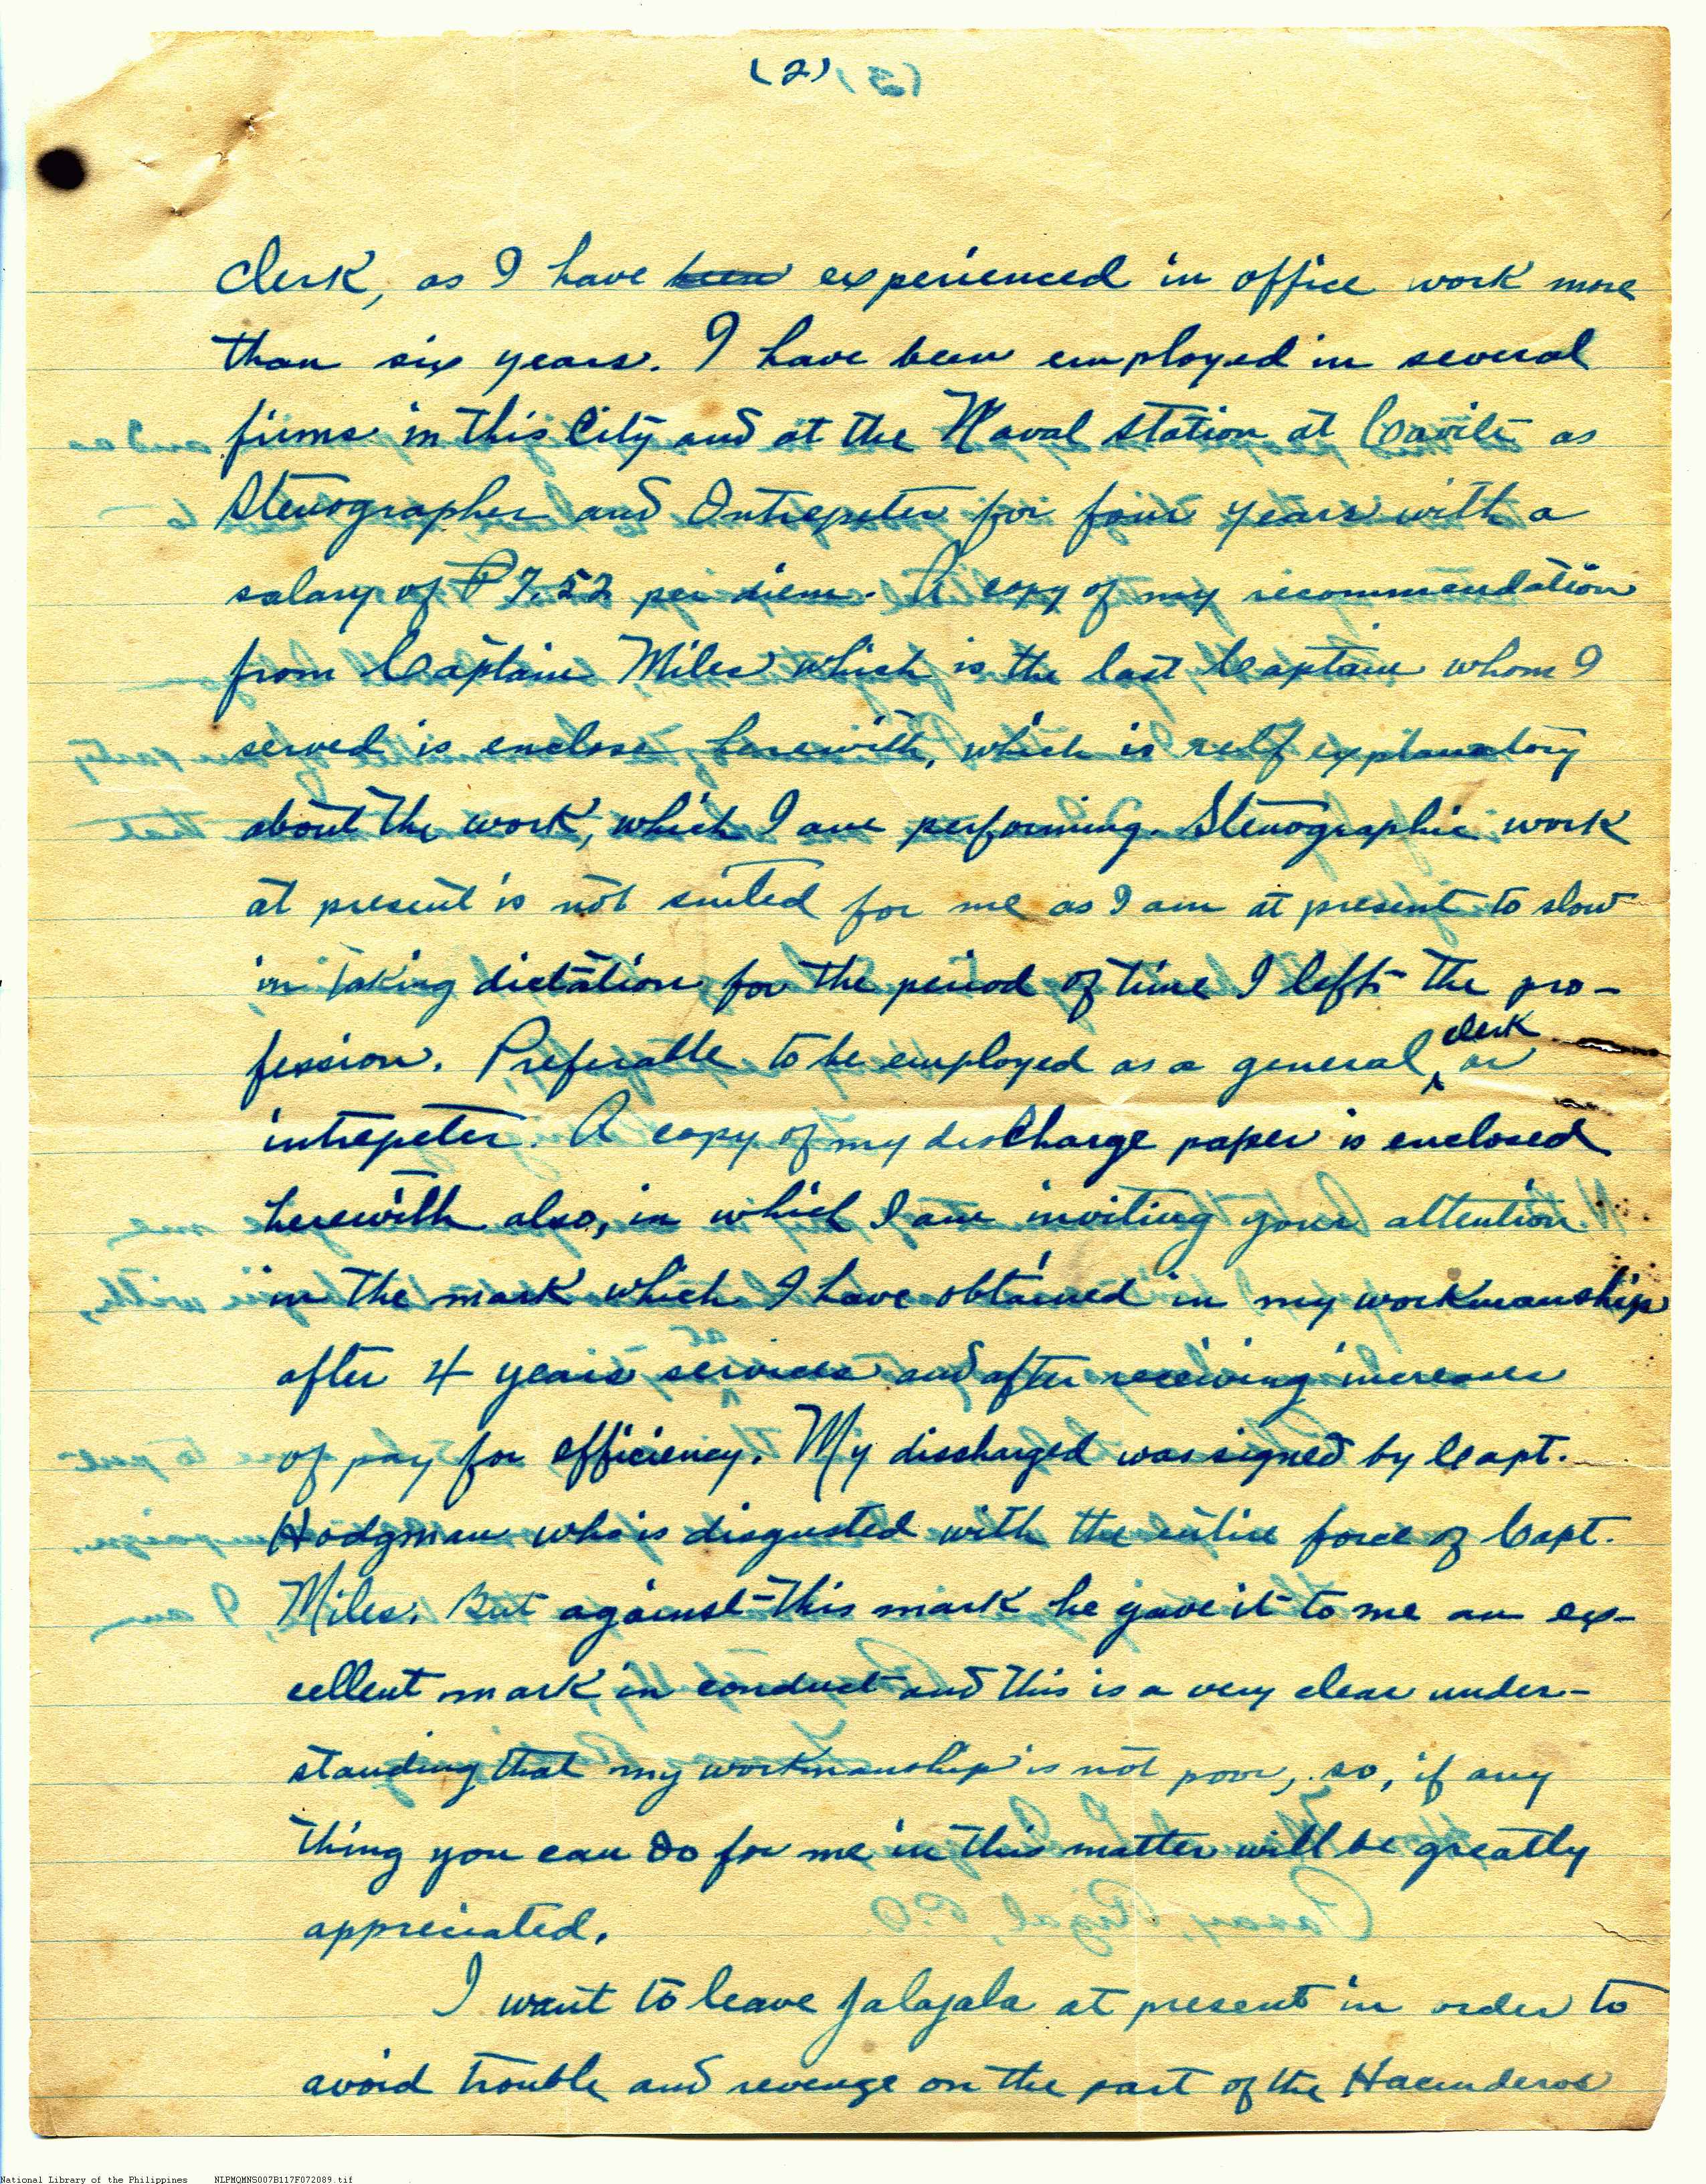 (2)
clerk, as I have been experienced in office work more
than six years. I have been employed in several
firms in this City and at the Naval Station at Cavite as
Stenographer and Intrepeter for four years with a
salary of ₱7.52 per diem. A copy of my recommendation
from Captain Miles which is the last Captain whom I
served is enclose herewith, which is self explanatory
about the work, which I am performing. Stenographic work
at present is not suited for me as I am at present to slow
in taking dictation for the period of time I left the pro-
fession. Preferable to be employed as a general clerk or
intrepeter. A copy of my discharge paper is enclosed
herewith also, in which I am inviting your attention
in the mark which I have obtained in my workmanship
after 4 years services and after receiving increases
of pay for efficiency. My discharged was signed by Capt.
Hodgman who is disgusted with the entire force of Capt.
Miles. But against this mark he gave it to me an ex-
cellent mark in conduct and this is a very clear under-
standing that my workmanship is not poor, so, if any
thing you can do for me in this matter will be greatly
appreciated.
I want to leave Jalajala at present in order to
avoid trouble and revenge on the part of the Hacenderos
National Library of the Philippines NLPMQMNS007B117F072089.tif